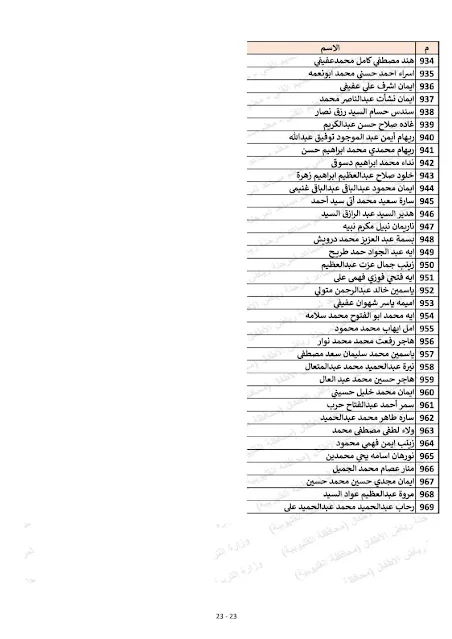 م الاسم
934 هند مصطفي كامل محمدعفيفي
935 اسراء احمد حسني محمد ابونعمه
936 ايمان اشرف علي عفيفى
937 ايمان نشأت عبدالناصر محمد
938 سندس حسام السيد رزق نصار
939 غاده صلاح حسن عبدالكريم
940 ريهام أيمن عبد الموجود توفيق عبدالله
941 ريهام محمدي محمد ابراهيم حسن
942 نداء محمد ابراهيم دسوقى
943 خلود صلاح عبدالعظيم ابراهيم زهرة
944 ايمان محمود عبدالباقى عبدالباقى غنيمى
945 سارة سعيد محمد أبى سيد أحمد
946 هدير السيد عبد الرازق السيد
947 ناريمان نبيل مكرم نبيه
948 بسمة عبد العزيز محمد درويش
949 ايه عبد الجواد حمد طريح
950 زينب جمال عزت عبدالعظيم
951 ايه فتحي فوزي فهمى على
952 ياسمين خالد عبدالرحمن متولي
953 اميمه ياسر شهوان عفيفى
954 ايه محمد ابو الفتوح محمد سلامه
955 امل ايهاب محمد محمود
956 هاجر رفعت محمد محمد نوار
957 ياسمين محمد سليمان سعد مصطفى
958 نيرة عبدالحميد محمد عبدالمتعال
959 هاجر حسين محمد عبد العال
960 ايمان محمد خليل حسينى
961 سمر أحمد عبدالفتاح حرب
962 ساره طاهر محمد عبدالحميد
963 ولاء لطفى مصطفى محمد
964 زينب ايمن فهمي محمود
965 نورهان اسامه يحي محمدين
966 منار عصام محمد الجميل
967 ايمان مجدي حسين محمد حسين
968 مروة عبدالعظيم عواد السيد
969 رحاب عبدالحميد محمد عبدالحميد على
23 - 23